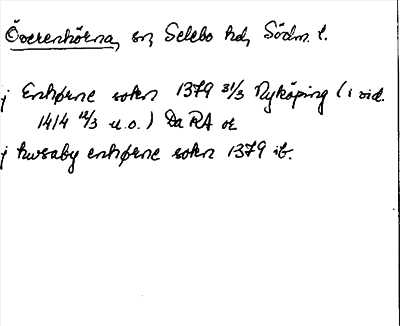 Överenhörna, sn, Selebo hd, Södm. l.
j Enhørne sokn 1379 31/3 Nyköping (i vid.
1414 12/3 u.o.) Da RA or
j husaby enhørne sokn 1379 ib.